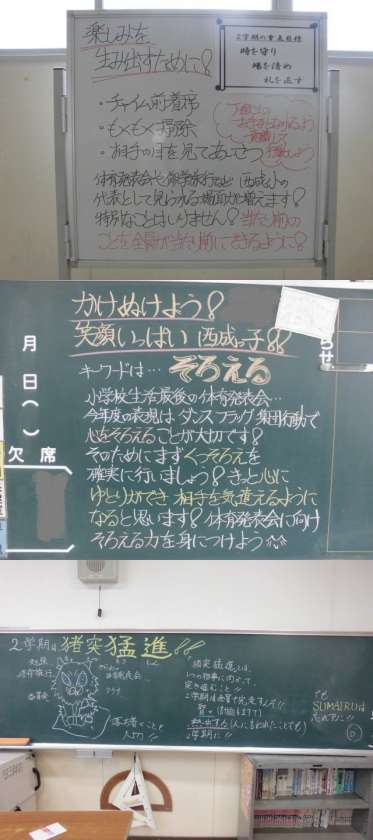 楽しみを
生み出すために!
2学期の重点目標
時を守り
場を清め
礼を返す
・チャイム前着席
・もくもく掃除
・相手の目を見てあいさつ
体育発表会や修学旅行など 西成小の
代表として見られる場面が増えます!
特別なことはいりません!当たり前の
ことを全員が当たり前にできるように!
かけぬけよう!
笑顔いっぱい 西成っ子!!
キーワードは… そろえる
小学校生活最後の体育発表会…
今年度の表現は ダンス フラッグ 集団行動で
心をそろえることが大切です!
そのためにまず くつそろえを
確実に行いましょう! きっと心に
ゆとりができ 相手を気遣えるように
なると思います! 体育発表会に向け
そろえる力を身につけよう
月
日
( )
欠席
らせ
2学期は 猪突猛進!!
修学旅行
体育発表会
猪突猛進とは、
1つの物事に向かって、
突き進むこと!!
2学期に!!
でも
SUMAIRUは
忘れずに!!